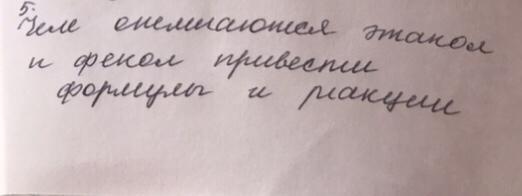 5.
Чем отличаются этанол
и фенол привести
формулы и реакции